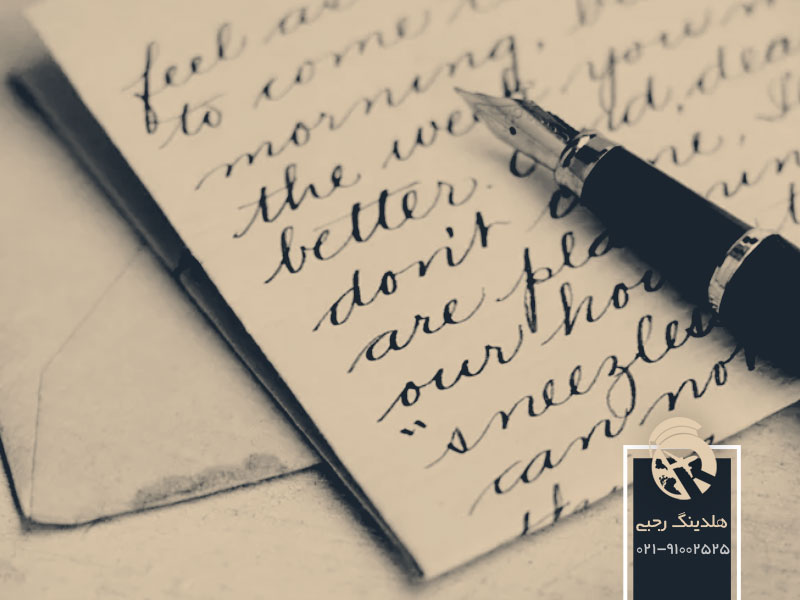 feel as
to come
morning.
the week you
better. dea
don't
are pla
our hou
"sneezles
can not
هلدینگ رجبی
۰۲۱-۹۱۰۰۲۵۲۵